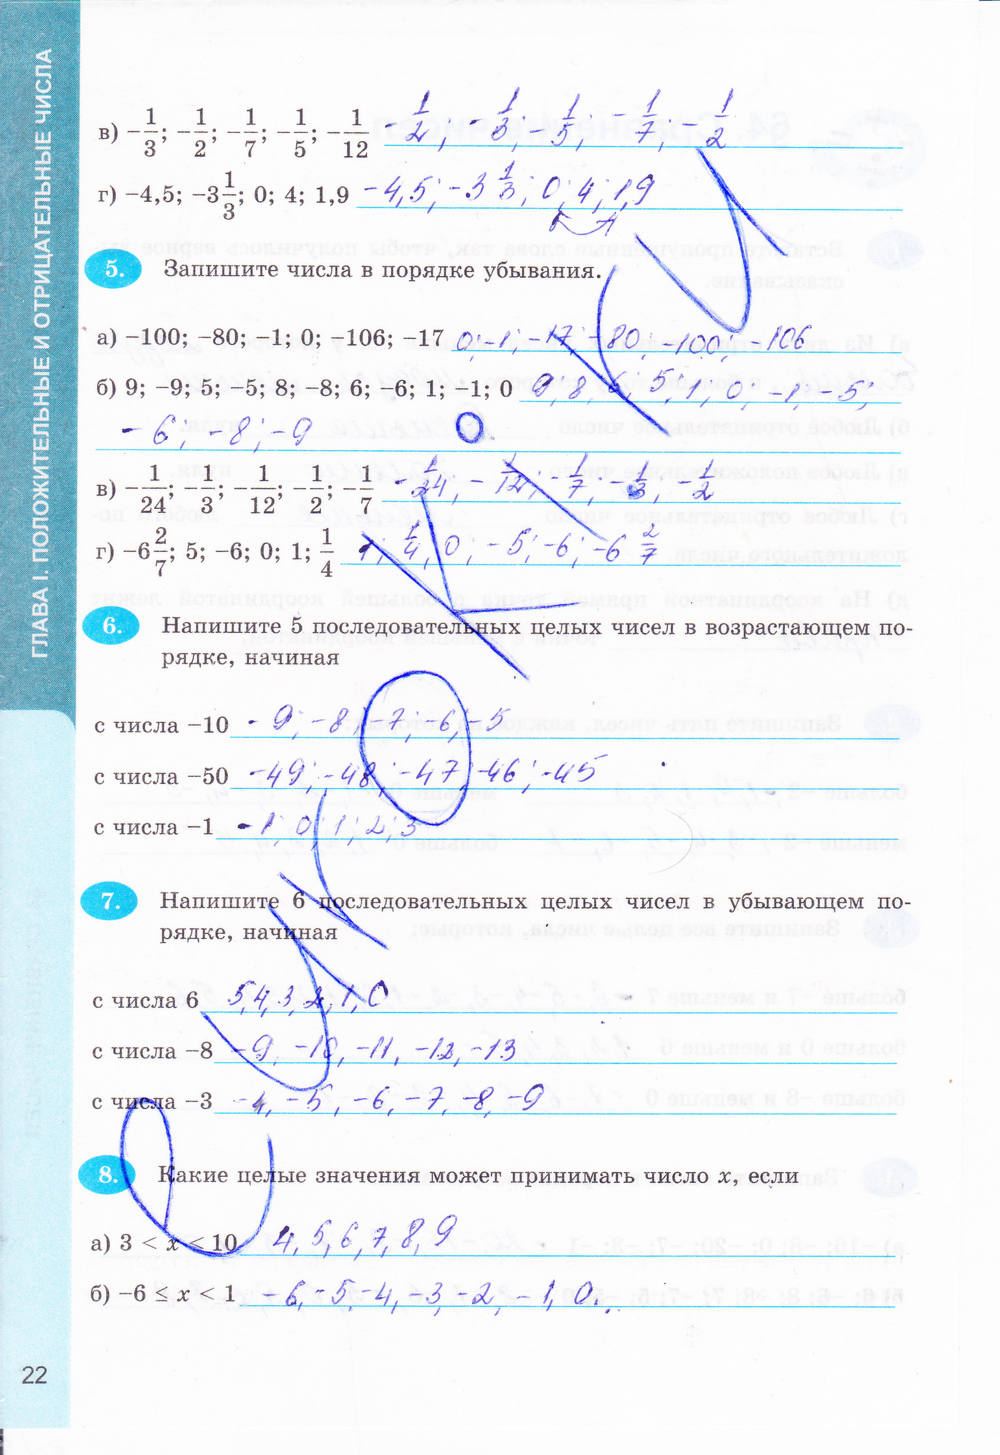 ГЛАВА I. ПОЛОЖИТЕЛЬНЫЕ И ОТРИЦАТЕЛЬНЫЕ ЧИСЛА
в) −1/3; −1/2; −1/7; −1/5; −1/12 −1/2, −1/3, −1/5, −1/7, −1/2
г) −4,5; −3 1/3; 0; 4; 1,9 −4,5; −3 1/3; 0; 4; 1,9
5. Запишите числа в порядке убывания.
а) −100; −80; −1; 0; −106; −17 0; −1; −17; −80; −100; −106
б) 9; −9; 5; −5; 8; −8; 6; −6; 1; −1; 0 9; 8; 6; 5; 1; 0; −1; −5;
−6; −8; −9
в) −1/24; −1/3; −1/12; −1/2; −1/7 −1/24, −1/12; −1/7; −1/3, −1/2
г) −6 2/7; 5; −6; 0; 1; 1/4 1; 1/4, 0; −5; −6; −6 2/7
6. Напишите 5 последовательных целых чисел в возрастающем по-
рядке, начиная
с числа −10 −9; −8; −7; −6; −5
с числа −50 −49; −48; −47 −46; −45
с числа −1 −1; 0; 1; 2; 3
7. Напишите 6 последовательных целых чисел в убывающем по-
рядке, начиная
с числа 6 5, 4, 3, 2, 1, 0
с числа −8 −9, −10, −11, −12, −13
с числа −3 −4, −5, −6, −7, −8, −9
8. Какие целые значения может принимать число x, если
а) 3 < x < 10 4, 5, 6, 7, 8, 9
б) −6 ≤ x < 1 −6, −5, −4, −3, −2, −1, 0.
22